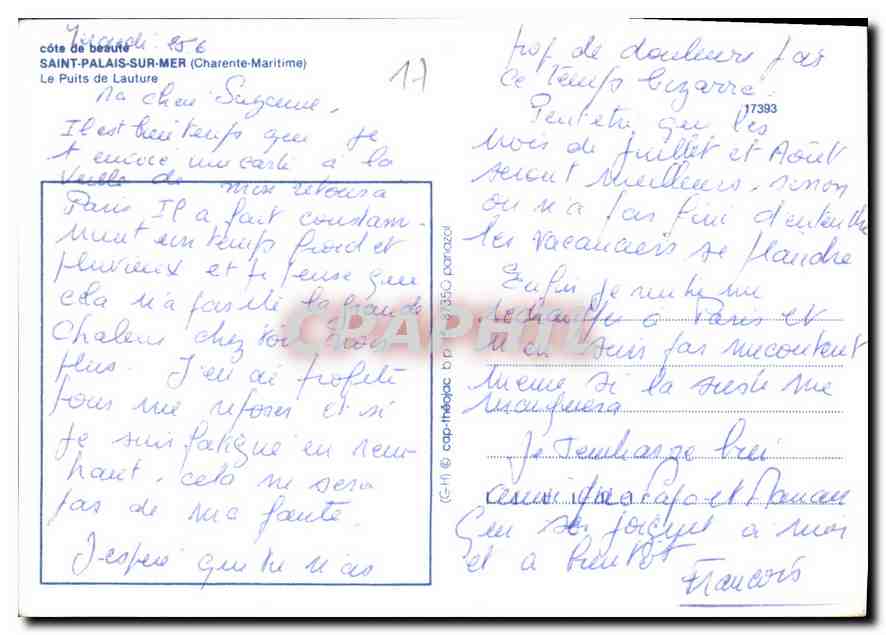 Vendredi 25 6
côte de beauté
SAINT-PALAIS-SUR-MER (Charente-Maritime)
Le Puits de Lauture
17
Ma chère Suzanne,
Il est bien temps que je
t'envoie une carte à la
veille de mon retour à
Paris. Il a fait constam-
ment un temps froid et
pluvieux et je pense que
cela n'a pas été la grande
chaleur chez vous non
plus. J'en ai profité
pour me reposer et si
je suis fatigué en ren-
trant, cela ne sera
pas de ma faute.
J'espère que tu n'as
(G-H) © cap-théojac b.p. 87350 panazol
CPAPHIL
trop de douleurs par
ce temps bizarre.
17393
Peut être que les
mois de Juillet et Août
seront meilleurs, sinon
on n'a pas fini d'entendre
les vacanciers se plaindre
Enfin je rentre me
à Paris et
n'en suis pas mécontent
même si la sieste me
manquera
Je t'embrasse bien
ainsi que Papa et Maman
qui se joignent à moi
et à bientôt
François